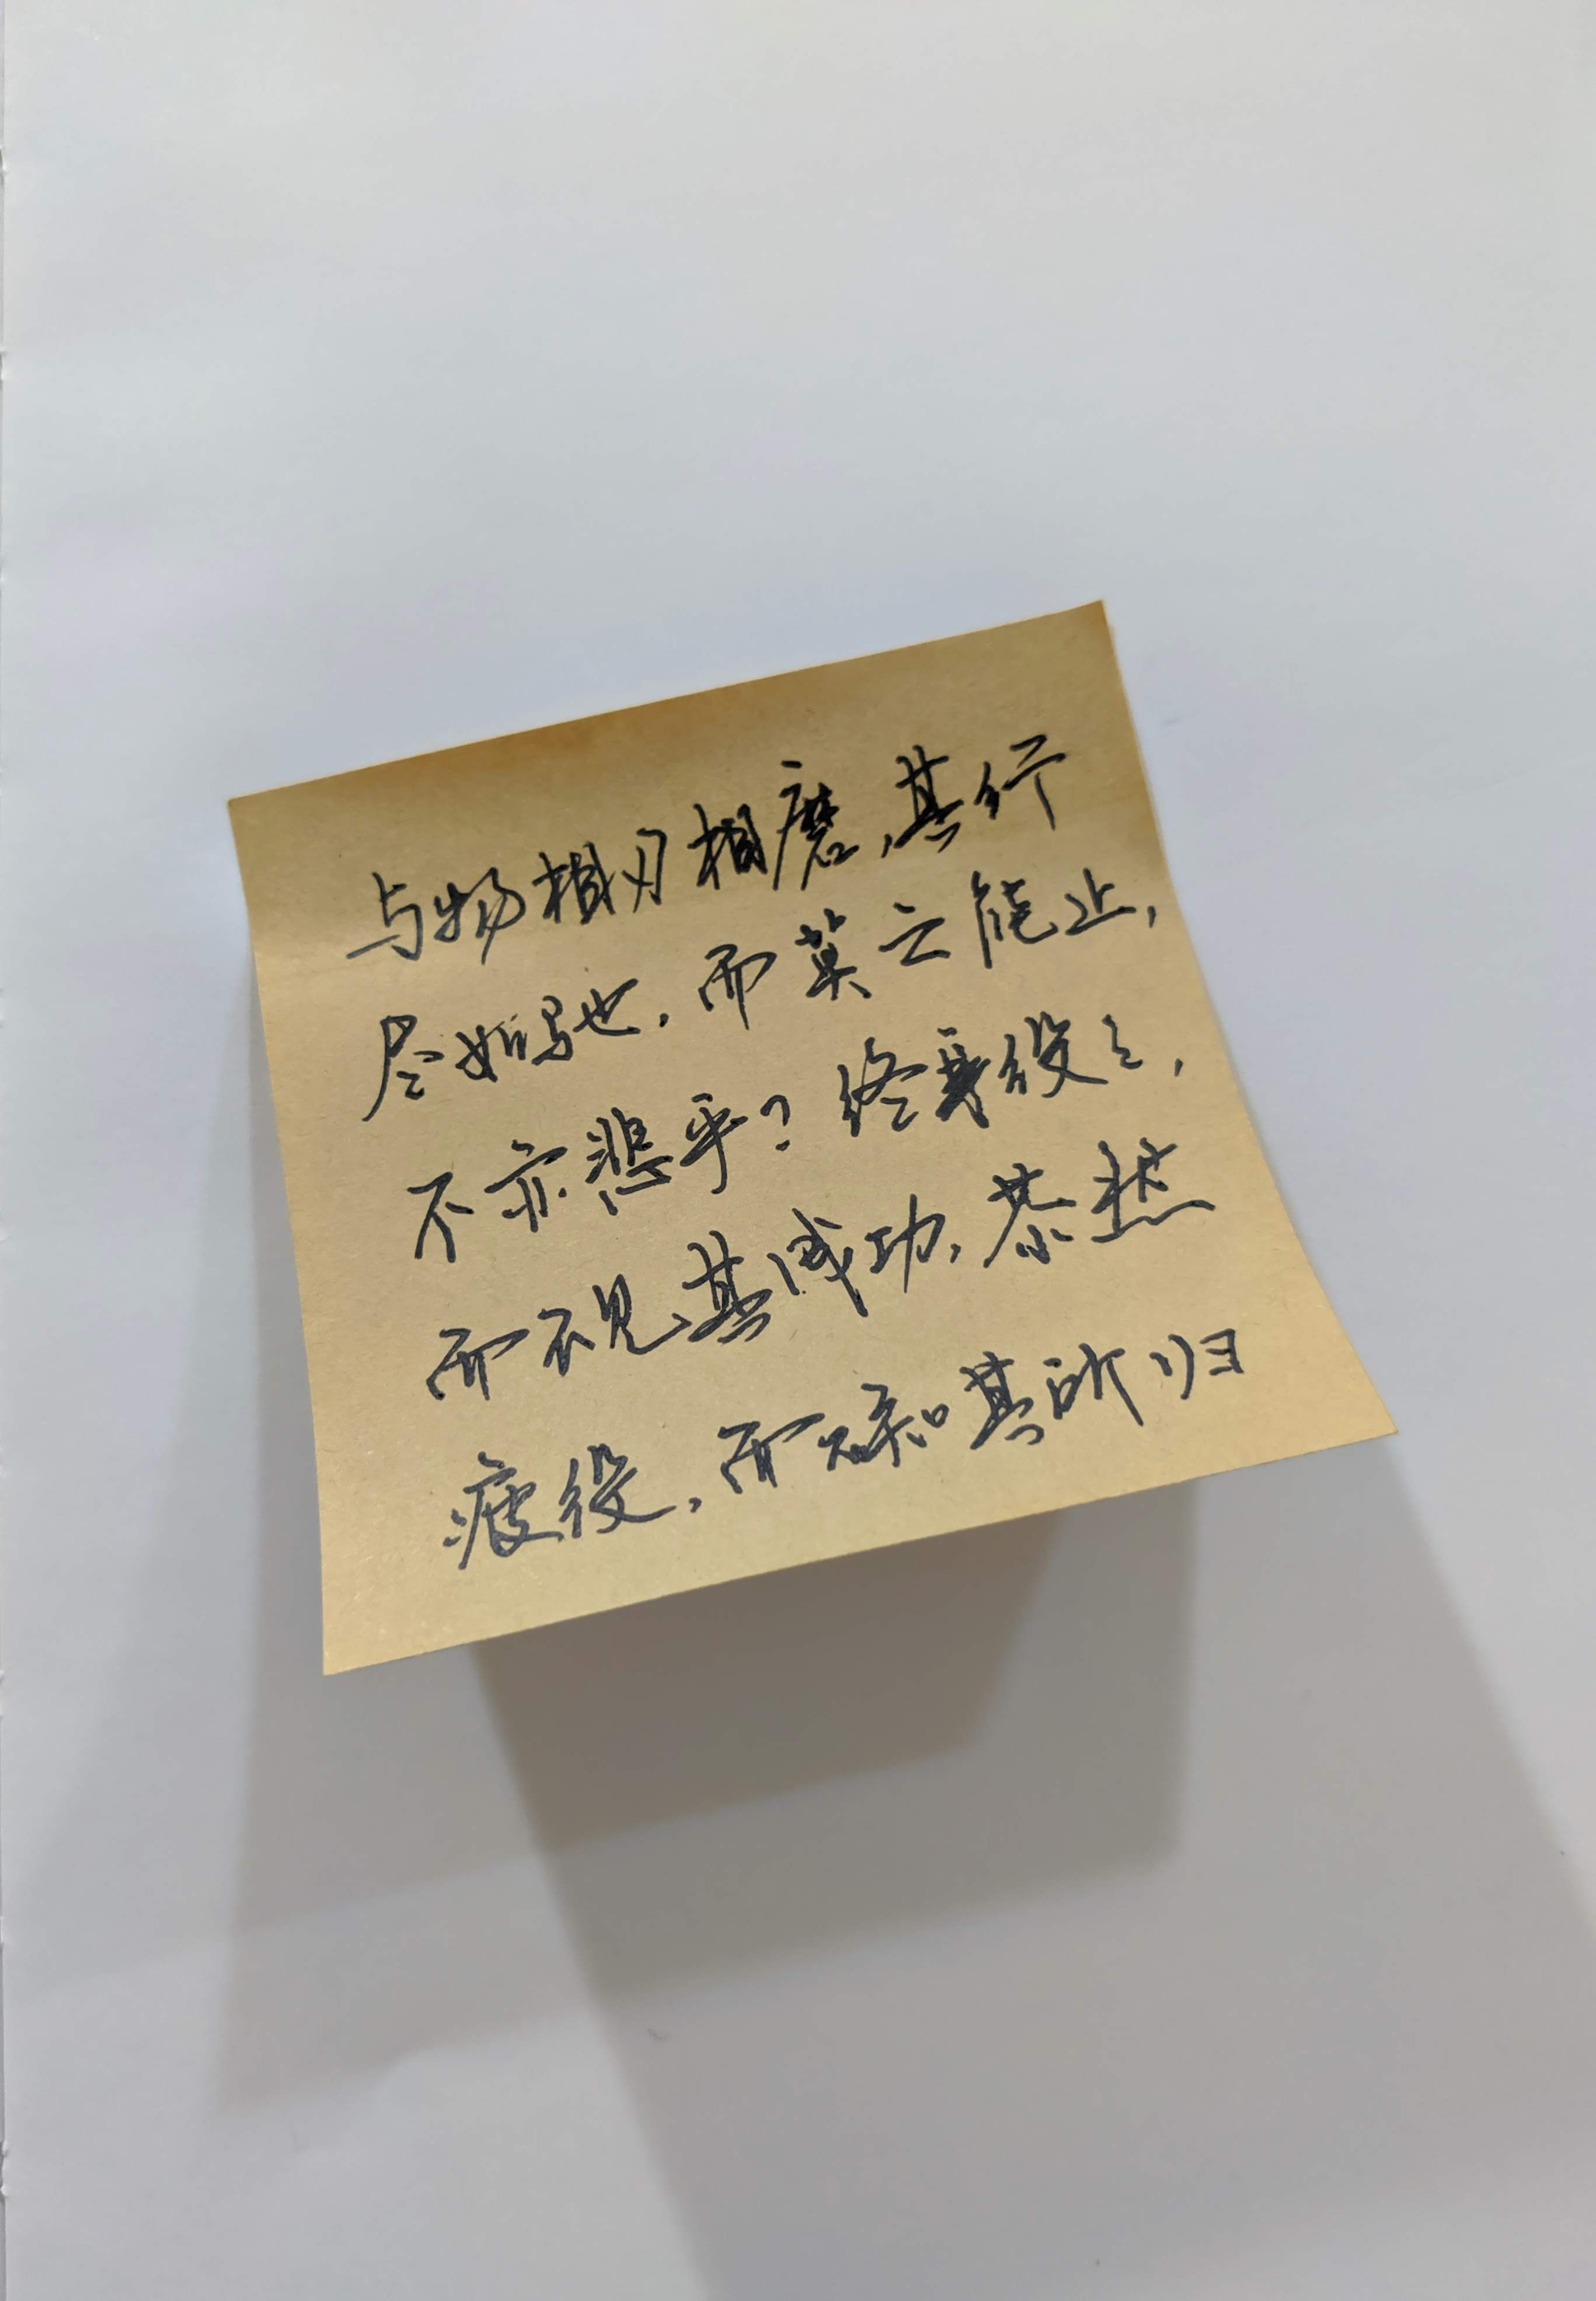 与物相刃相磨，其行
尽如驰也，而莫之能止，
不亦悲乎？终身役役，
而不见其成功，茶然
疲役，而不知其所归